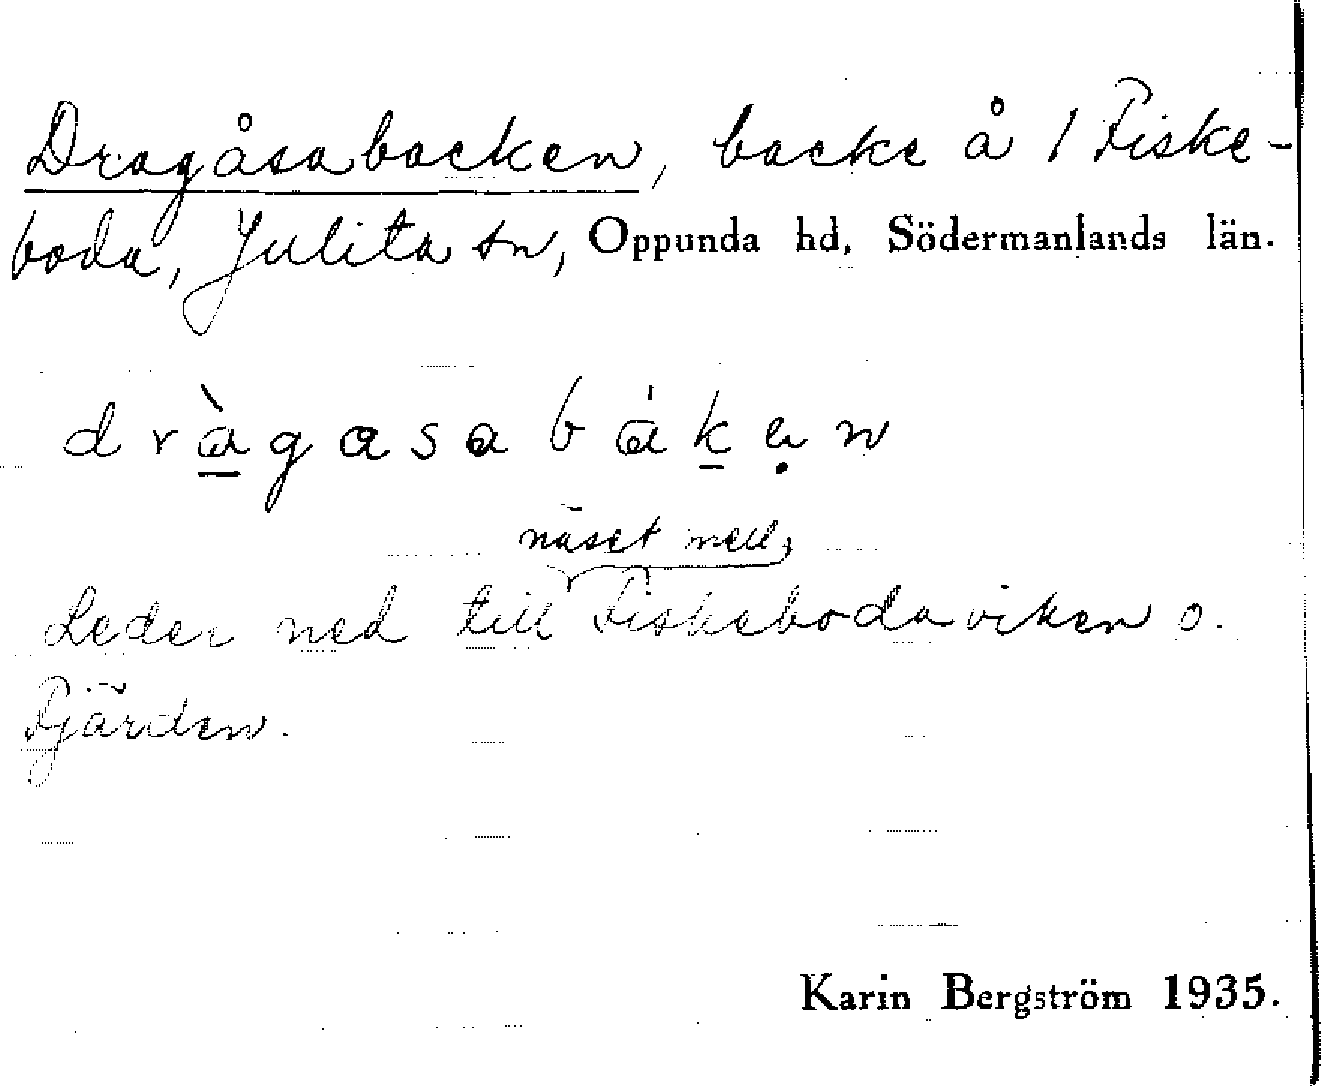 Dragåsabacken, backe å 1 Fiske-
boda, Julita sn, Oppunda hd, Södermanlands län.
dràgasabákẹn
näset mell.
Leder ned till Fiskebodaviken o.
Fjärden.
Karin Bergström 1935.